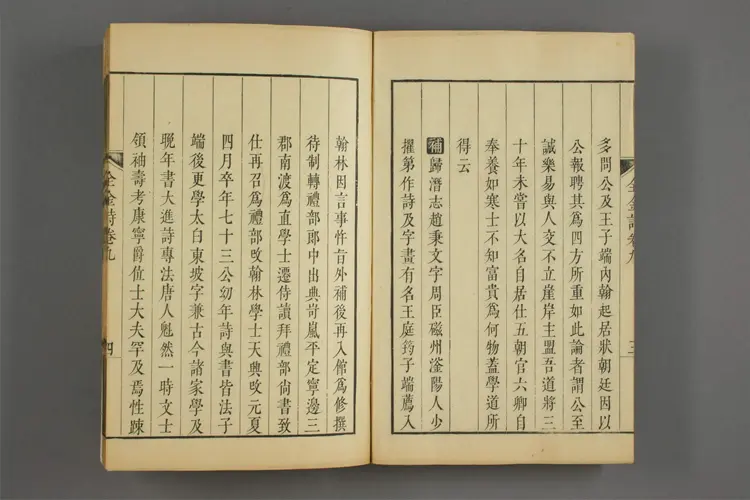 多問公及王子端內翰起居狀朝廷因以
公報聘其爲四方所重如此論者謂公至
誠樂易與人交不立崖岸主盟吾道將三
十年未嘗以大名自居仕五朝官六卿自
奉養如寒士不知富貴爲何物蓋學道所
得云
補歸潛志趙秉文字周臣磁州滏陽人少
擢第作詩及字畫有名王庭筠子端薦入
全金詩卷九
三
翰林因言事忤旨外補後再入館爲修撰
待制轉禮部郎中出典岢嵐平定寧邊三
郡南渡爲直學士遷侍讀拜禮部尚書致
仕再召爲禮部改翰林學士天興改元夏
四月卒年七十三公幼年詩與書皆法子
端後更學太白東坡字兼古今諸家學及
晚年書大進詩專法唐人魁然一時文士
領袖壽考康寧爵位士大夫罕及焉性踈
全金詩卷九
四